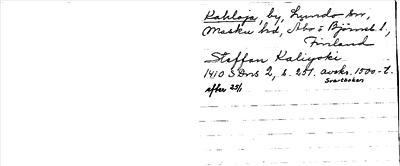 Kahloja, by, Lundo sn,
Masku hd, Åbo o Björneb l.,
Finland
Staffan Kaliyoki
1410 SDns 2, s. 257. avskr. 1500-t.
Svartboken
efter 23/1